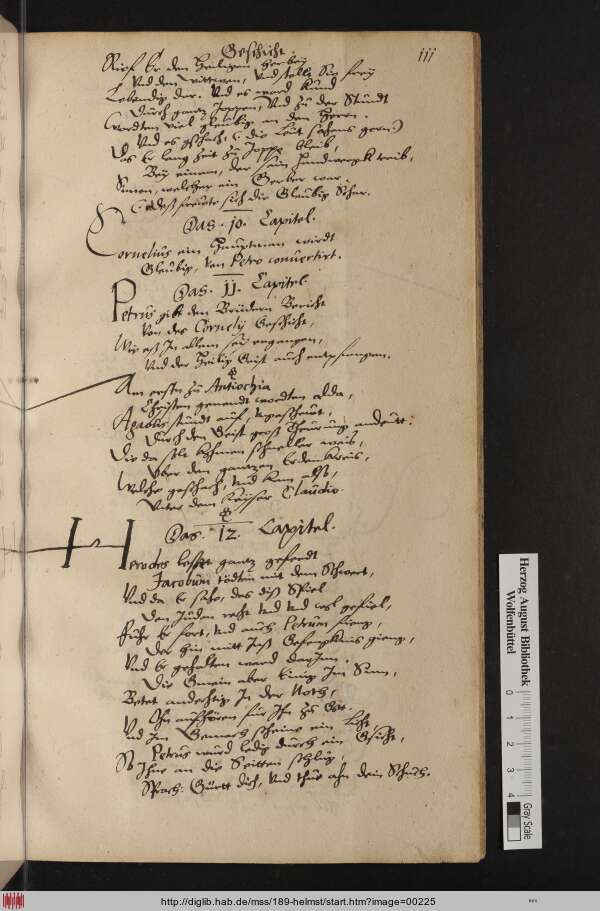 Geschicht
iii
Rieff Er den Heiligen herbey
Vnd den Wittwen, Vnd stellt Sie frey
Lebendig dar. Vnd es ward kund
Durch gantz Joppen, Vnd zu der Stundt
Wordten viel gleubig an den Herrn.
Vnd es gschach, (: die Leut sahens gern:)
Das Er lang Zeit zu Joppe bleib,
Bey einem, der sein Handwergk treib,
Simon, welcher ein Gerber war.
deß frewte sich die Gleubig Schar.
Das .10. Capitel.
Cornelius ein Hauptman wirdt
Gleubig, von Petro conuertirt.
Das. 11. Capitel.
Petrus gibt den Brüdern Bericht
Von des Cornelij Geschicht,
Wie eß In allem sey ergangen,
Vnd der Heilig Geist auch entpfangen.
Am ersten zu Antiochia
Christen genendt wordten alda,
Agabus stundt auf,
Durch den Geist groß Theurung andeutt.
Die da solt kohmen schneller weis,
Vber den gantzen Erdenkreis,
Welche geschach, vnd kam also,
Vnter dem Keyser Claudio.
Das. 12. Capitel.
Herodes lesset gantz gefendt
Jacobum tödten mit dem Schwert,
Vnd da Er sahe, das diß Spiel
Den Juden recht vnd wol gefiel,
Fuhr Er fort, vnd auch Petrum fieng,
Der hin mitt Inß Gefengknus gieng,
Vnd Er gehalten ward darinn.
Die Gmein aber einig Im Sinn,
Betet andechtig In der Noth,
Ohn auffhören für Ihn zu Got.
Vnd Im Gemach scheine ein Licht,
Petrus ward ledig durch ein Gsicht,
So Ihne an die Seitten schlug
Sprach: Gürtt dich, Vnd thue ahn dein Schuch.
Herzog August Bibliothek
Wolfenbüttel
0 1 2 3 4
Gray Scale
http://diglib.hab.de/mss/189-helmst/start.htm?image=00225